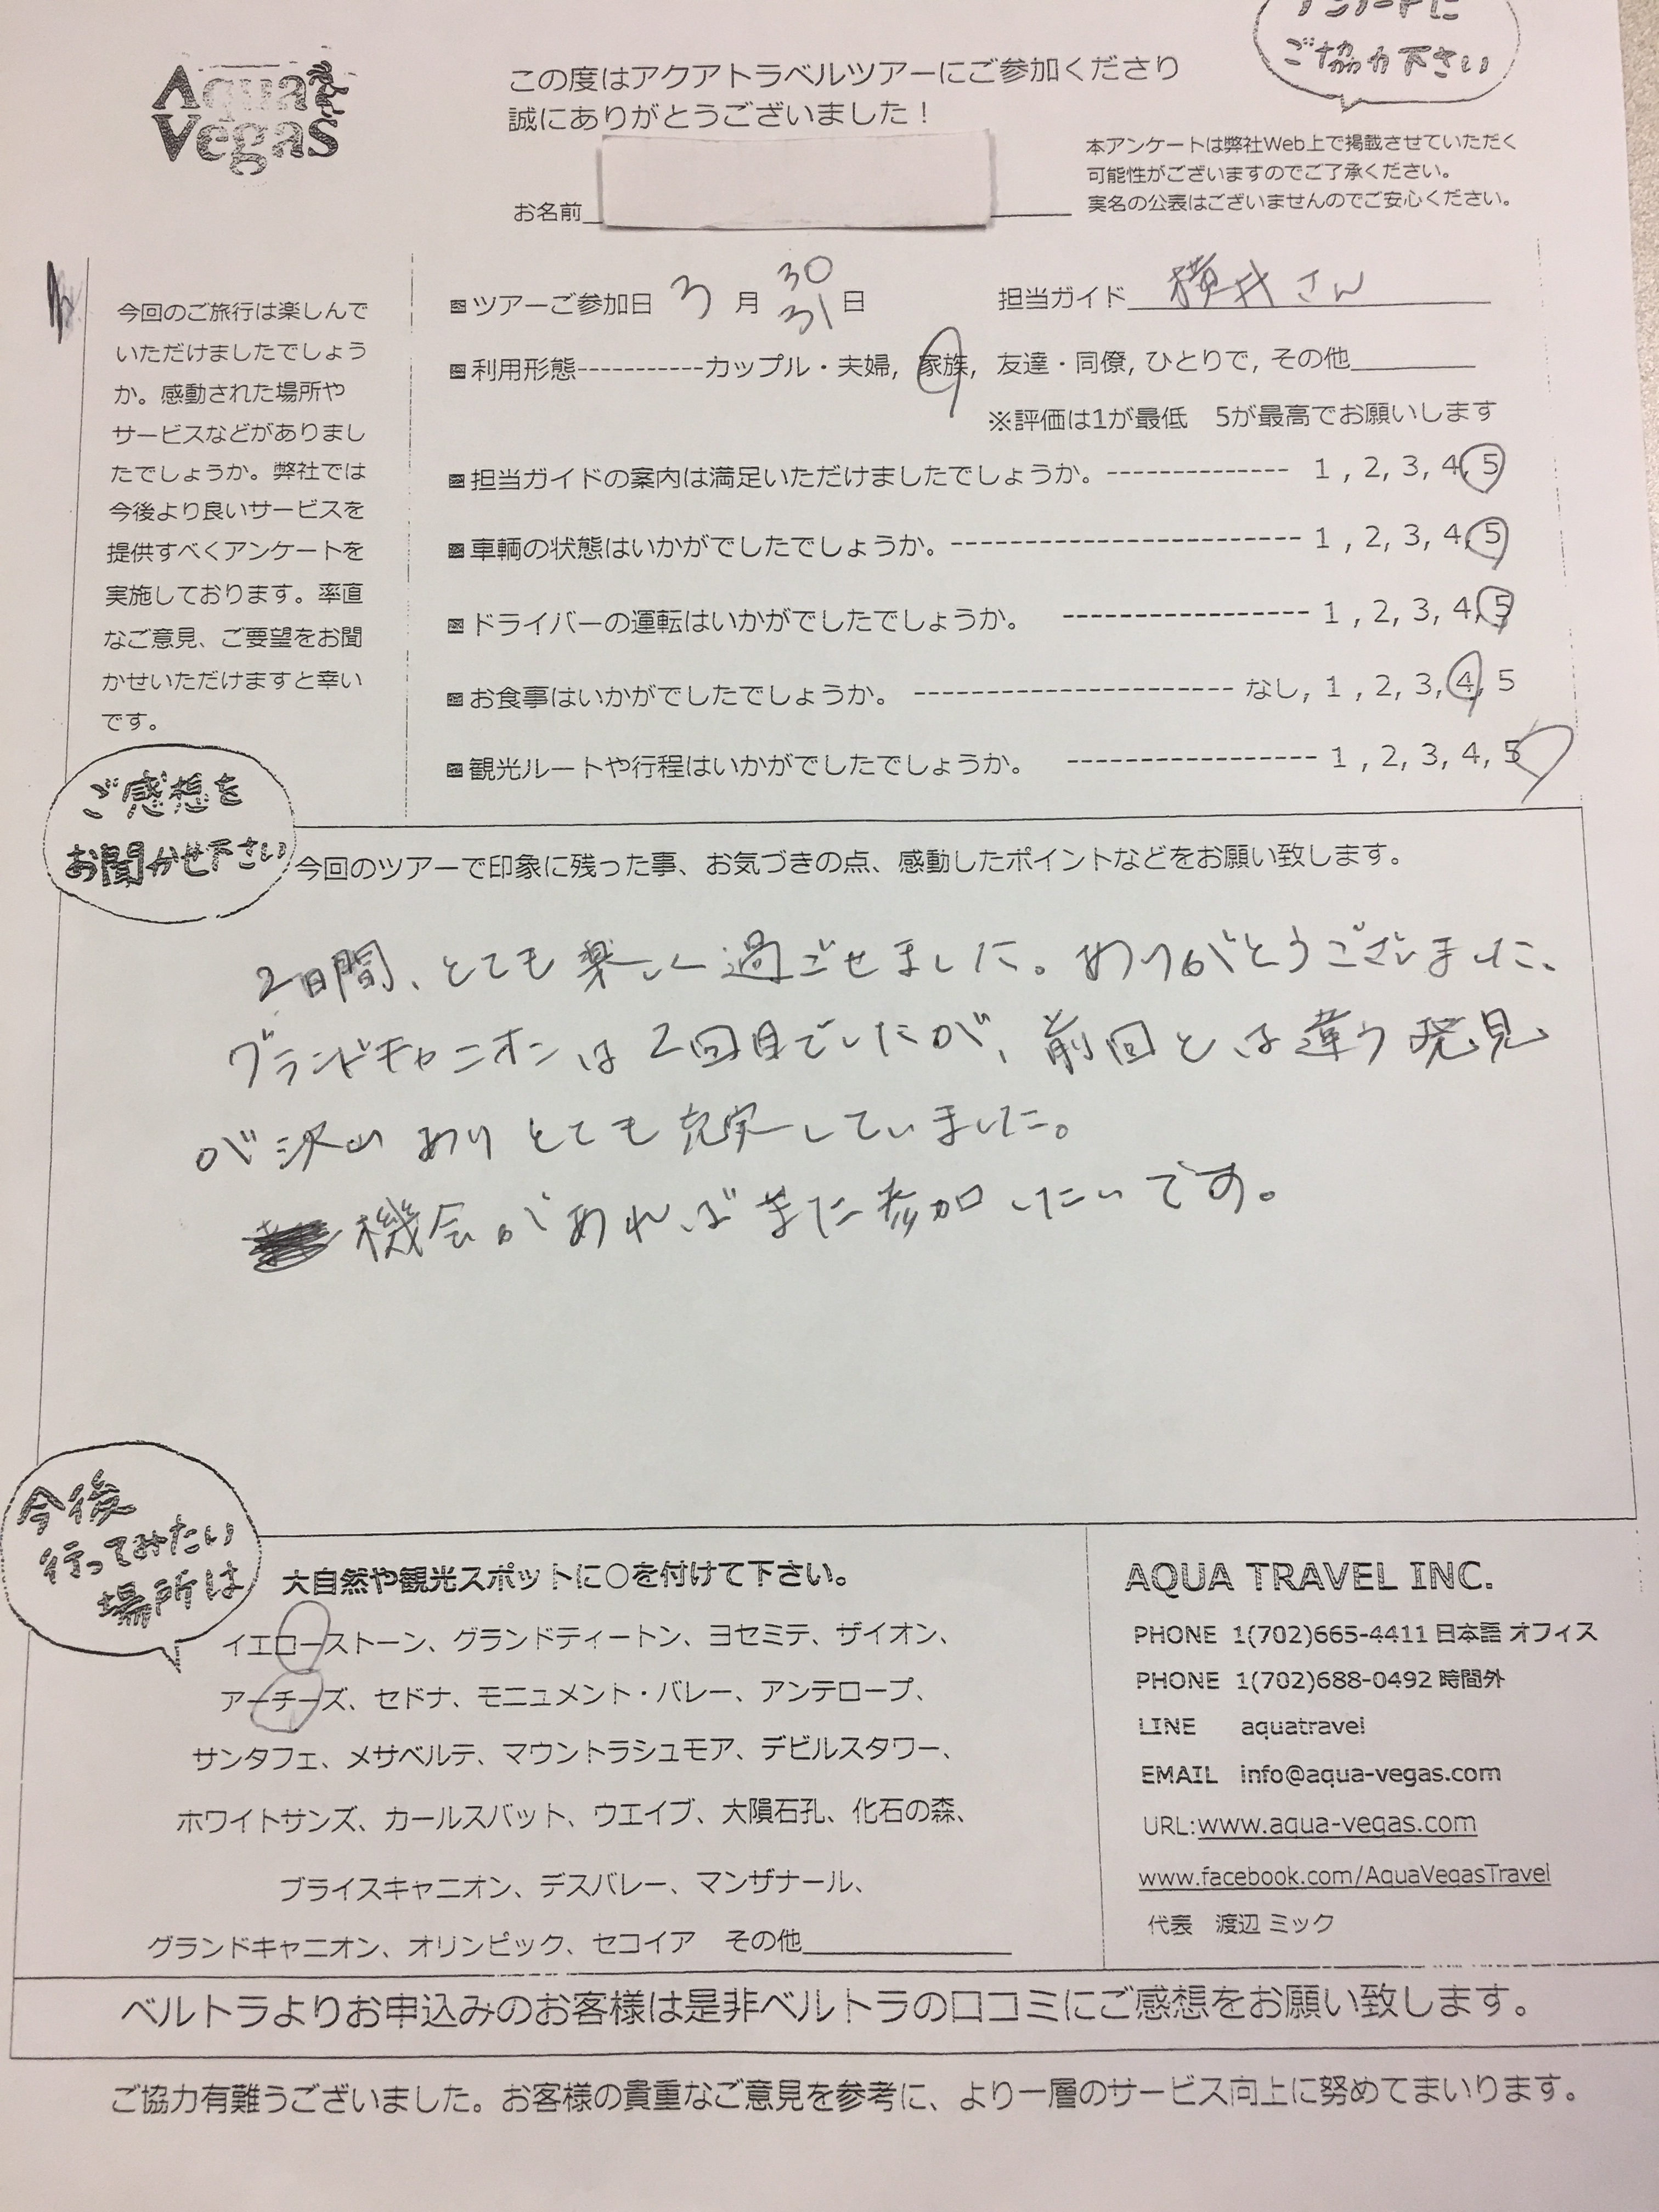 Aqua Vegas
アンケートに
ご協力下さい
この度はアクアトラベルツアーにご参加くださり
誠にありがとうございました！
本アンケートは弊社Web上で掲載させていただく
可能性がございますのでご了承ください。
実名の公表はございませんのでご安心ください。
お名前
今回のご旅行は楽しんで
いただけましたでしょう
か。感動された場所や
サービスなどがありまし
たでしょうか。弊社では
今後より良いサービスを
提供すべくアンケートを
実施しております。率直
なご意見、ご要望をお聞
かせいただけますと幸い
です。
ツアーご参加日 3 月 30 31 日 担当ガイド 横井さん
利用形態-----------カップル・夫婦, 家族, 友達・同僚, ひとりで, その他
※評価は1が最低 5が最高でお願いします
担当ガイドの案内は満足いただけましたでしょうか。-------------- 1 , 2, 3, 4, 5
車輌の状態はいかがでしたでしょうか。----------------------- 1 , 2, 3, 4, 5
ドライバーの運転はいかがでしたでしょうか。 ---------------- 1 , 2, 3, 4, 5
お食事はいかがでしたでしょうか。 --------------------- なし, 1 , 2, 3, 4, 5
観光ルートや行程はいかがでしたでしょうか。 ---------------- 1 , 2, 3, 4, 5
ご感想を
お聞かせ下さい
今回のツアーで印象に残った事、お気づきの点、感動したポイントなどをお願い致します。
2日間、とても楽しく過ごせました。ありがとうございました、
グランドキャニオンは2回目でしたが、前回とは違う発見
が沢山ありとても充実していました。
機会があればまた参加したいです。
今後
行ってみたい
場所は
大自然や観光スポットに○を付けて下さい。
イエローストーン、グランドティートン、ヨセミテ、ザイオン、
アーチーズ、セドナ、モニュメント・バレー、アンテロープ、
サンタフェ、メサベルテ、マウントラシュモア、デビルスタワー、
ホワイトサンズ、カールスバット、ウエイブ、大隕石孔、化石の森、
ブライスキャニオン、デスバレー、マンザナール、
グランドキャニオン、オリンピック、セコイア その他
AQUA TRAVEL INC.
PHONE 1(702)665-4411 日本語 オフィス
PHONE 1(702)688-0492 時間外
LINE aquatravel
EMAIL info@aqua-vegas.com
URL:www.aqua-vegas.com
www.facebook.com/AquaVegasTravel
代表 渡辺 ミック
ベルトラよりお申込みのお客様は是非ベルトラの口コミにご感想をお願い致します。
ご協力有難うございました。お客様の貴重なご意見を参考に、より一層のサービス向上に努めてまいります。